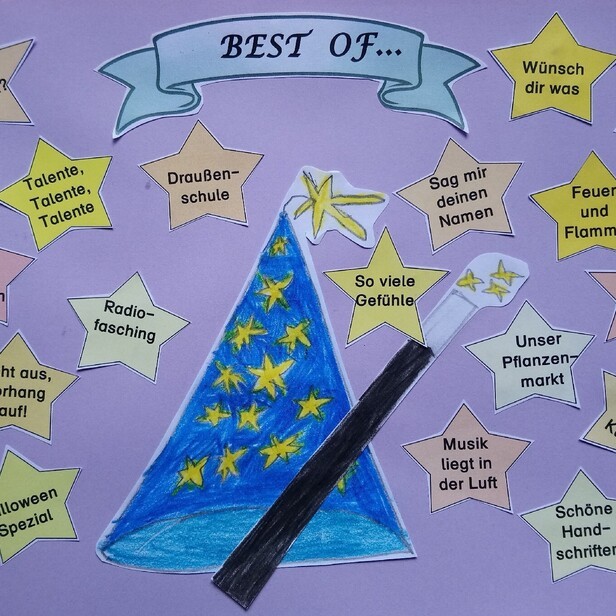 BEST OF...
Wünsch
dir was
Talente,
Talente,
Talente
Draußen-
schule
Sag mir
deinen
Namen
Feuer
und
So viele
Gefühle
Radio-
fasching
Unser
Pflanzen-
markt
aus,
auf!
Musik
liegt in
der Luft
Spezial
Schöne
Hand-
schriften